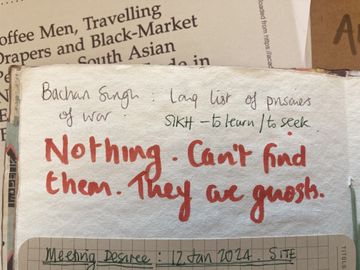 offee Men, Travelling
Drapers and Black-Market
South Asian
de in
loaded from https://aca
A
Bachan Singh : Long list of prisoners
of war.
SIKH – to learn / to seek.
Nothing. Can't find
them. They are ghosts.
Meeting Desiree : 12 Jan 2024. SITE